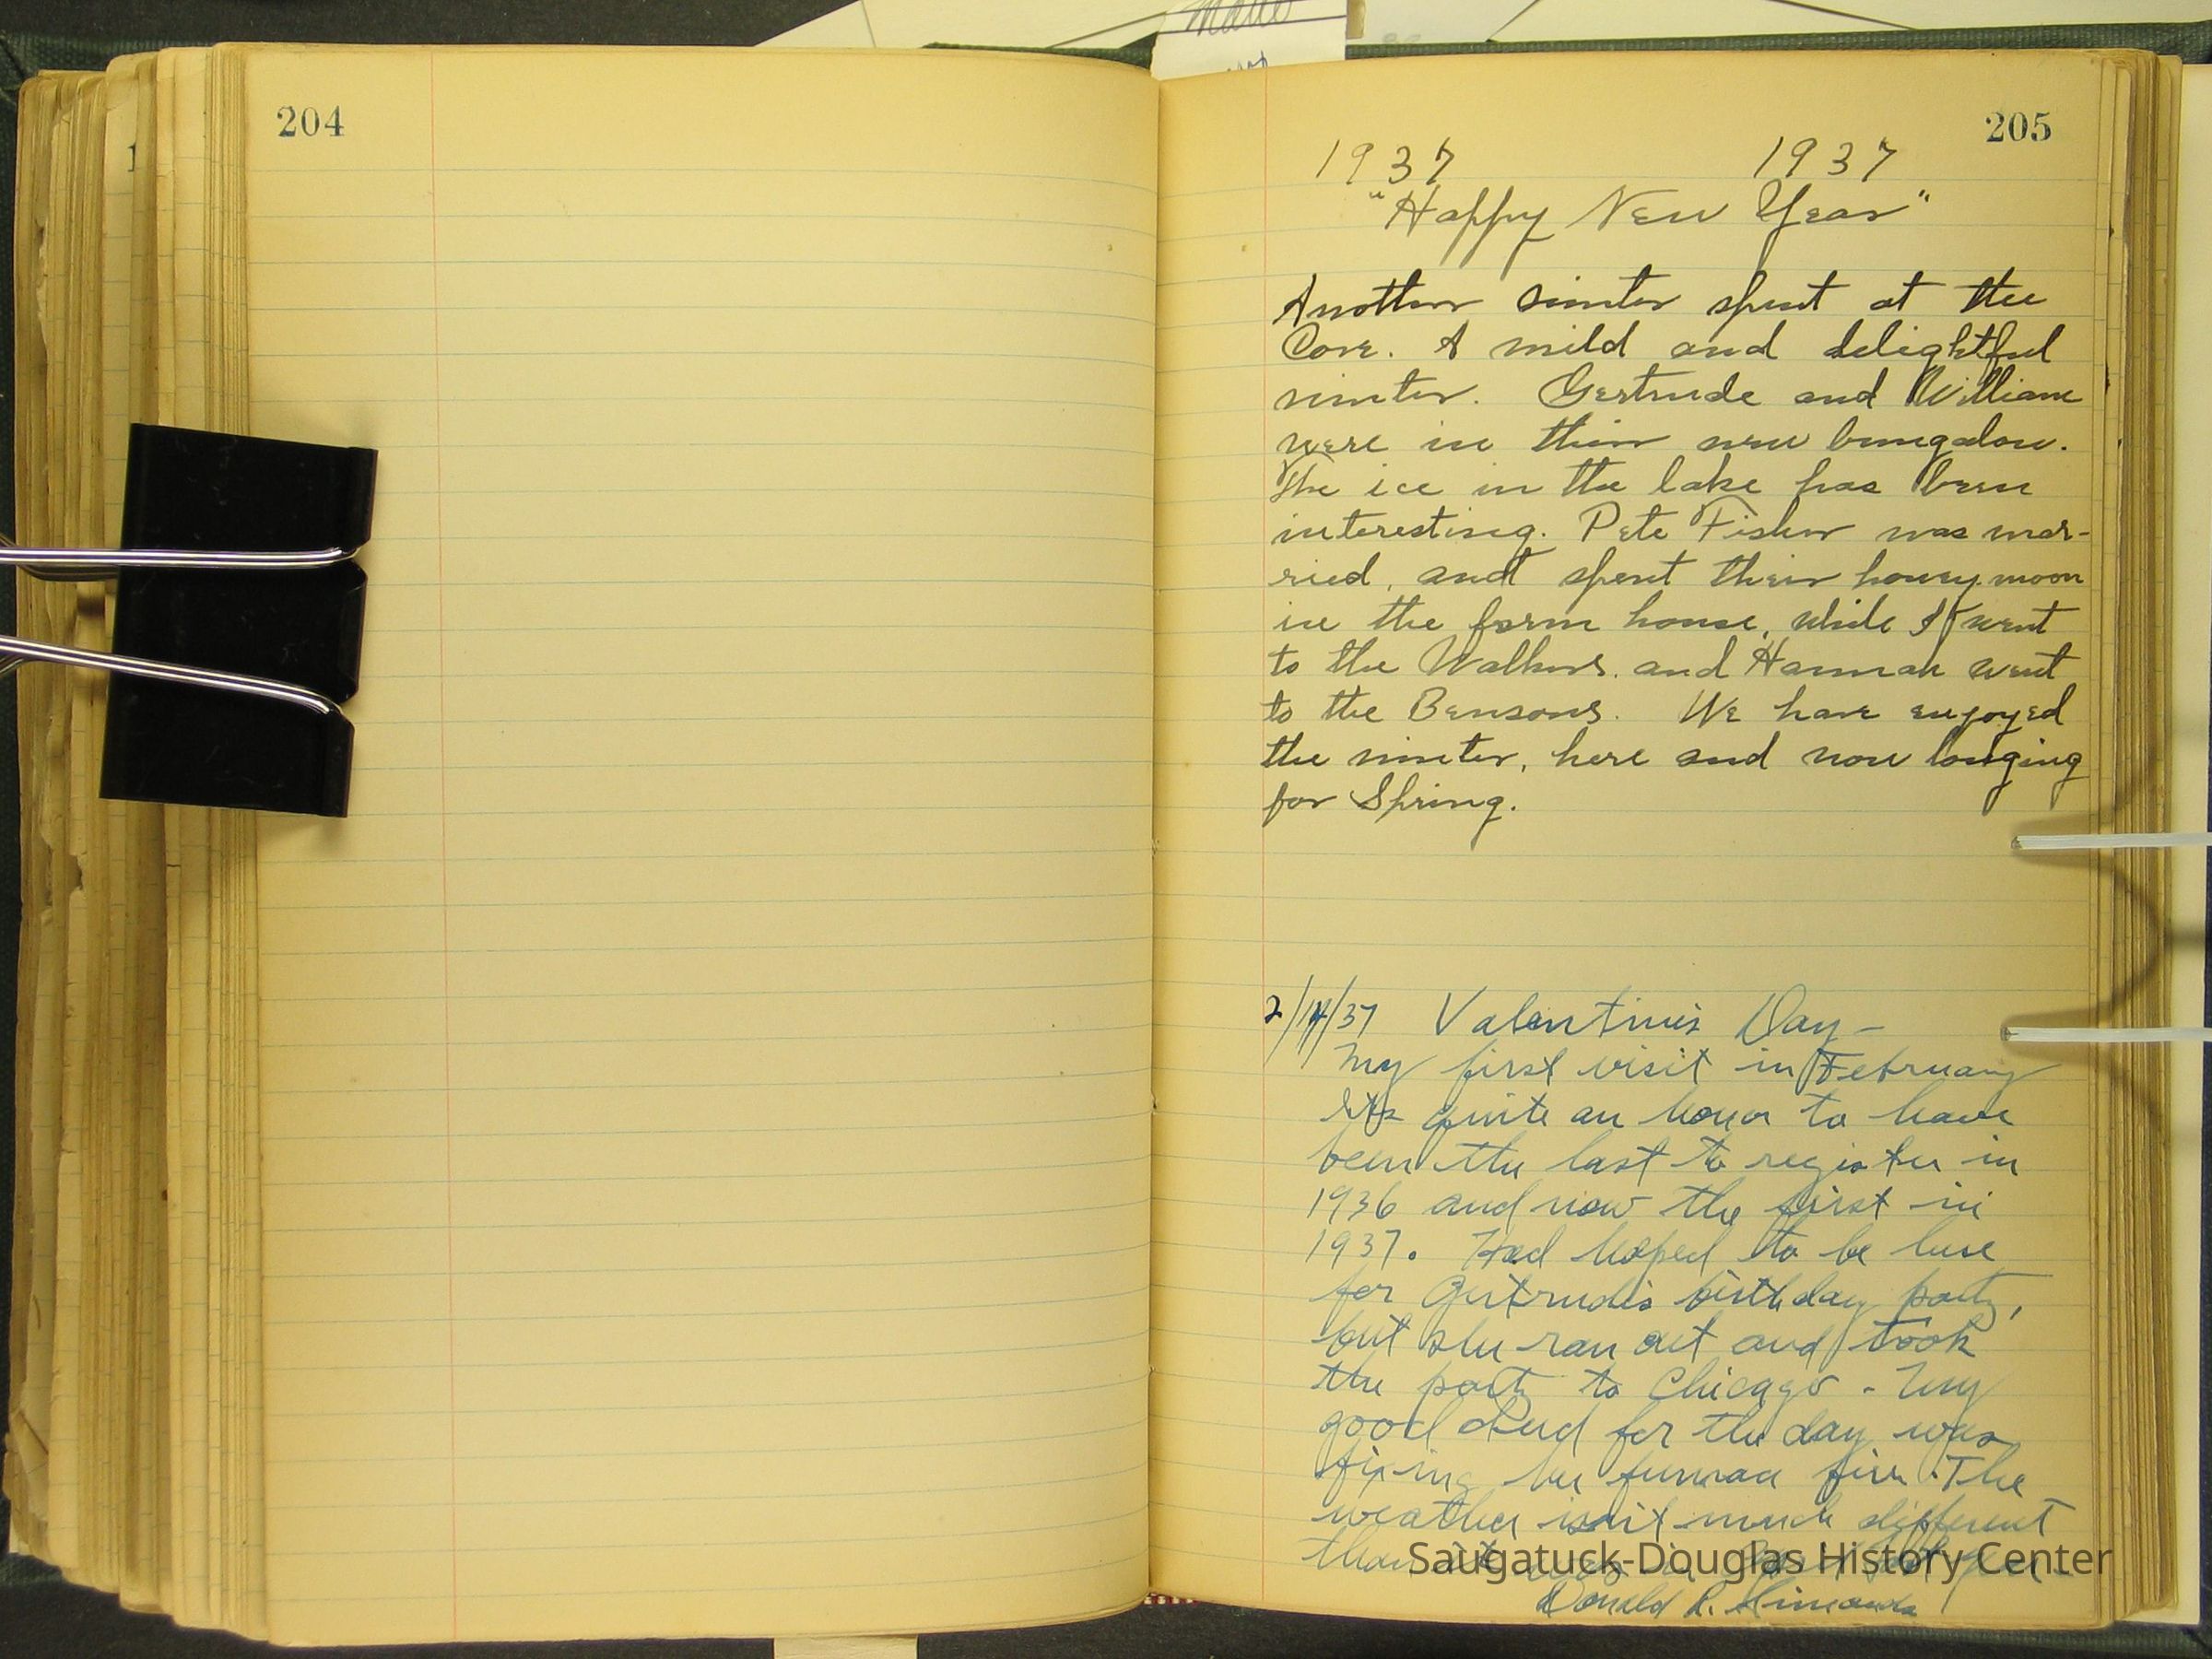 204
205
1937 1937
"Happy New Year"
Another winter spent at the
Cove. A mild and delightful
winter. Gertrude and William
were in their new bungalow.
The ice in the lake has been
interesting. Pete Fisher was mar-
ried, and spent their honey moon
in the farm house, while I went
to the Walkers. and Hannah went
to the Bensons. We have enjoyed
the winter, here and now longing
for Spring.
2/14/37 Valentine's Day -
My first visit in February
It's quite an honor to have
been the last to register in
1936 and now the first in
1937. Had hoped to be here
for Gertrude's birthday party,
but she ran out and took
the party to Chicago - My
good deed for the day was
fixing her furnace fire. The
weather isn't much different
than it was in
Donald R. Simonds
Saugatuck-Douglas History Center